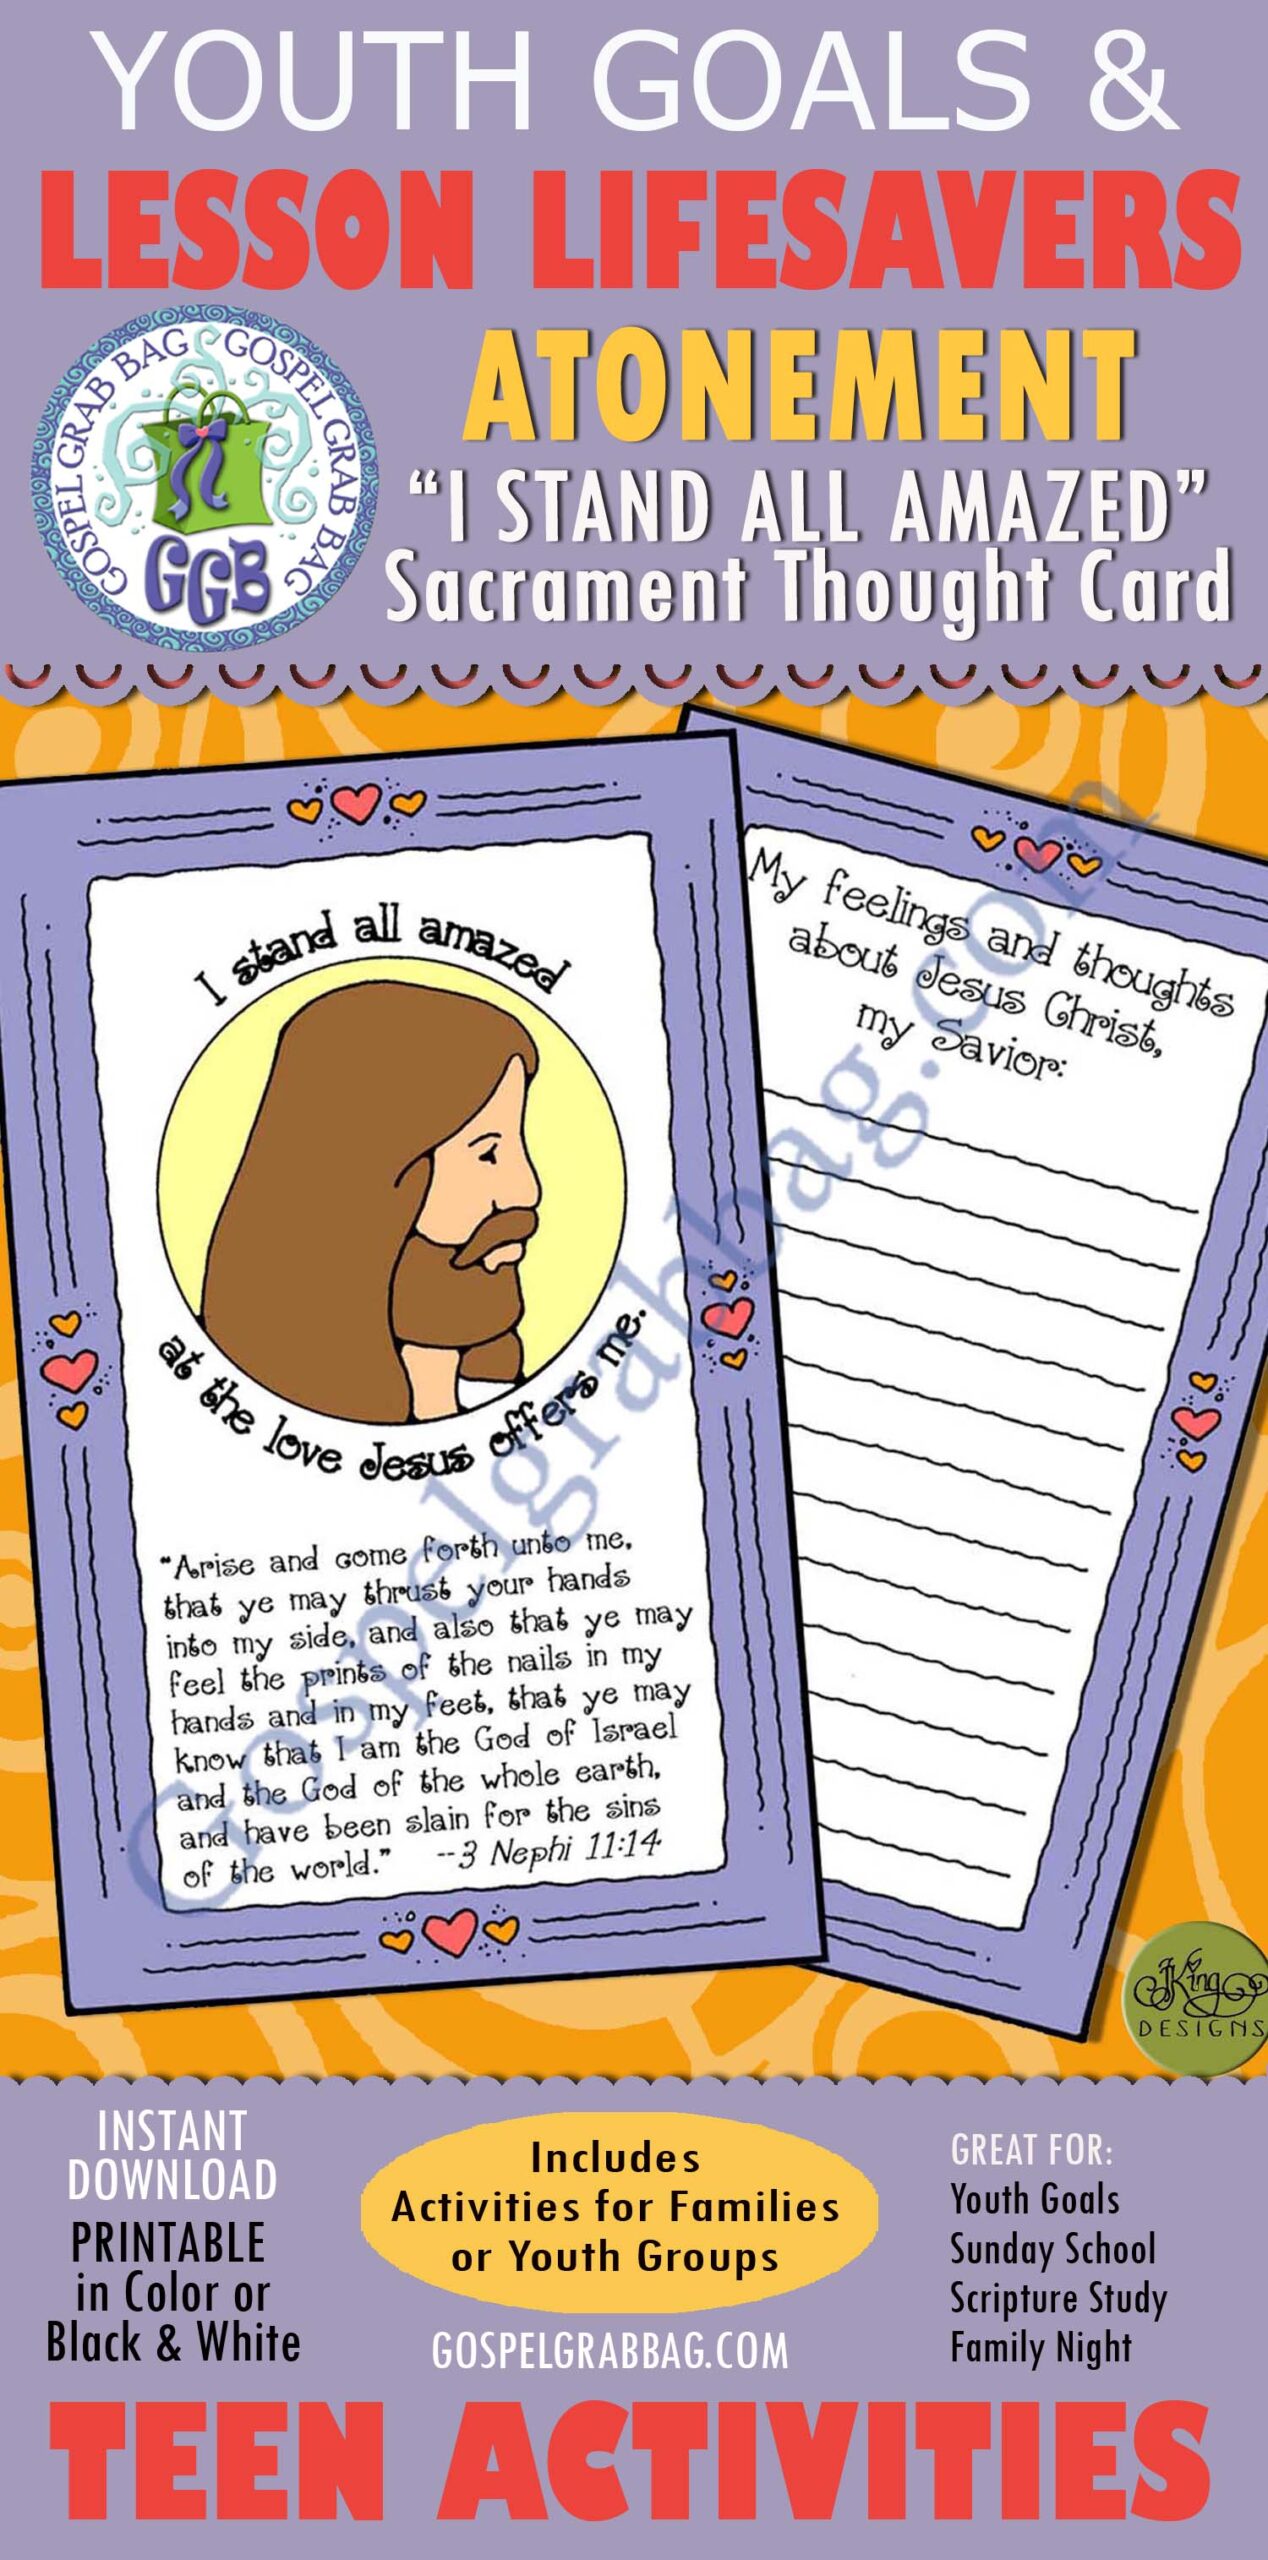 YOUTH GOALS &
LESSON LIFESAVERS
GOSPEL GRAB BAG GOSPEL GRAB BAG
GGB
ATONEMENT
"I STAND ALL AMAZED"
Sacrament Thought Card
I stand all amazed
at the love Jesus offers me.
"Arise and come forth unto me,
that ye may thrust your hands
into my side, and also that ye may
feel the prints of the nails in my
hands and in my feet, that ye may
know that I am the God of Israel
and the God of the whole earth,
and have been slain for the sins
of the world." --3 Nephi 11:14
My feelings and thoughts
about Jesus Christ,
my Savior:
Gospelgrabbag.com
JKing
DESIGNS
INSTANT
DOWNLOAD
PRINTABLE
in Color or
Black & White
Includes
Activities for Families
or Youth Groups
GOSPELGRABBAG.COM
GREAT FOR:
Youth Goals
Sunday School
Scripture Study
Family Night
TEEN ACTIVITIES